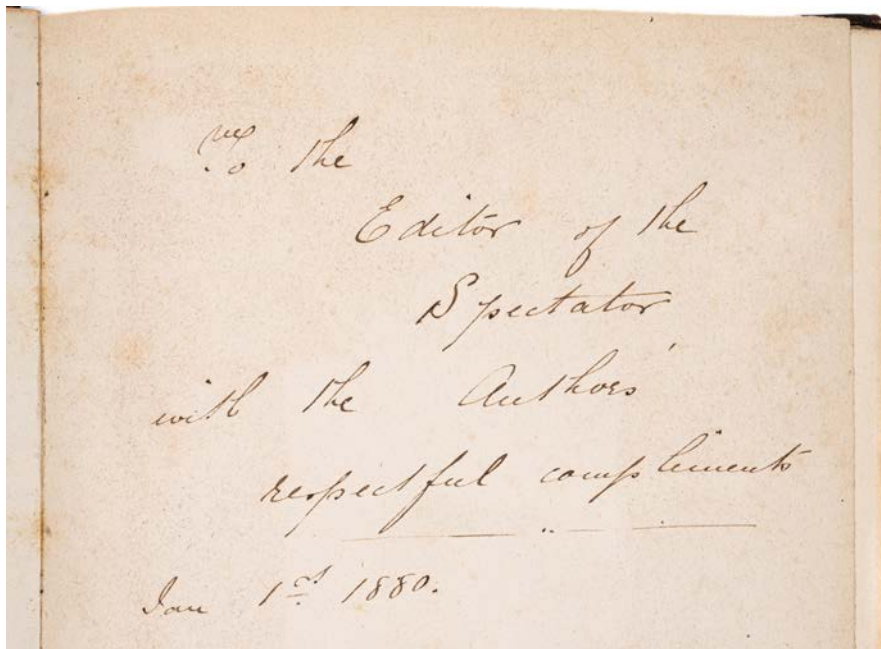 To the
Editor of the
Spectator
with the Author's
respectful compliments
Jan 1st 1880.